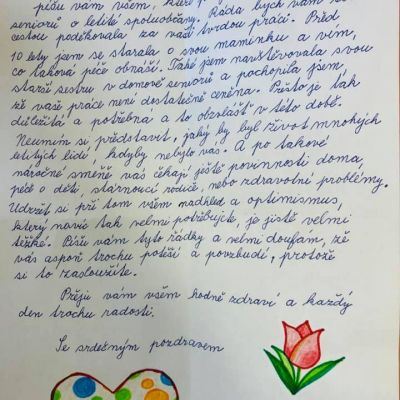 píšu vám všem, kteří p
seniorů o letité spoluobčany. Ráda bych vám to
cestou poděkovala za vaši tvrdou práci. Před
10 lety jsem se starala o svou maminku a vím,
co taková péče obnáší. Také jsem navštěvovala svou
starší sestru v domově seniorů a pochopila jsem,
že vaše práce není dostatečně ceněna. Přesto je tak
důležitá a potřebná a to obzvlášť v této době.
Neumím si představit, jaký by byl život mnohých
letitých lidí, kdyby nebylo vás. A po takové
náročné směně vás čekají ještě povinnosti doma,
péče o děti, stárnoucí rodiče, nebo zdravotní problémy.
Udržet si při tom všem nadhled a optimismus,
který navíc tak velmi potřebujete, je jistě velmi
těžké. Píši vám tyto řádky a velmi doufám, že
vás aspoň trochu potěší a povzbudí, protože
si to zasloužíte.
Přeji vám všem hodně zdraví a každý
den trochu radosti.
Se srdečným pozdravem